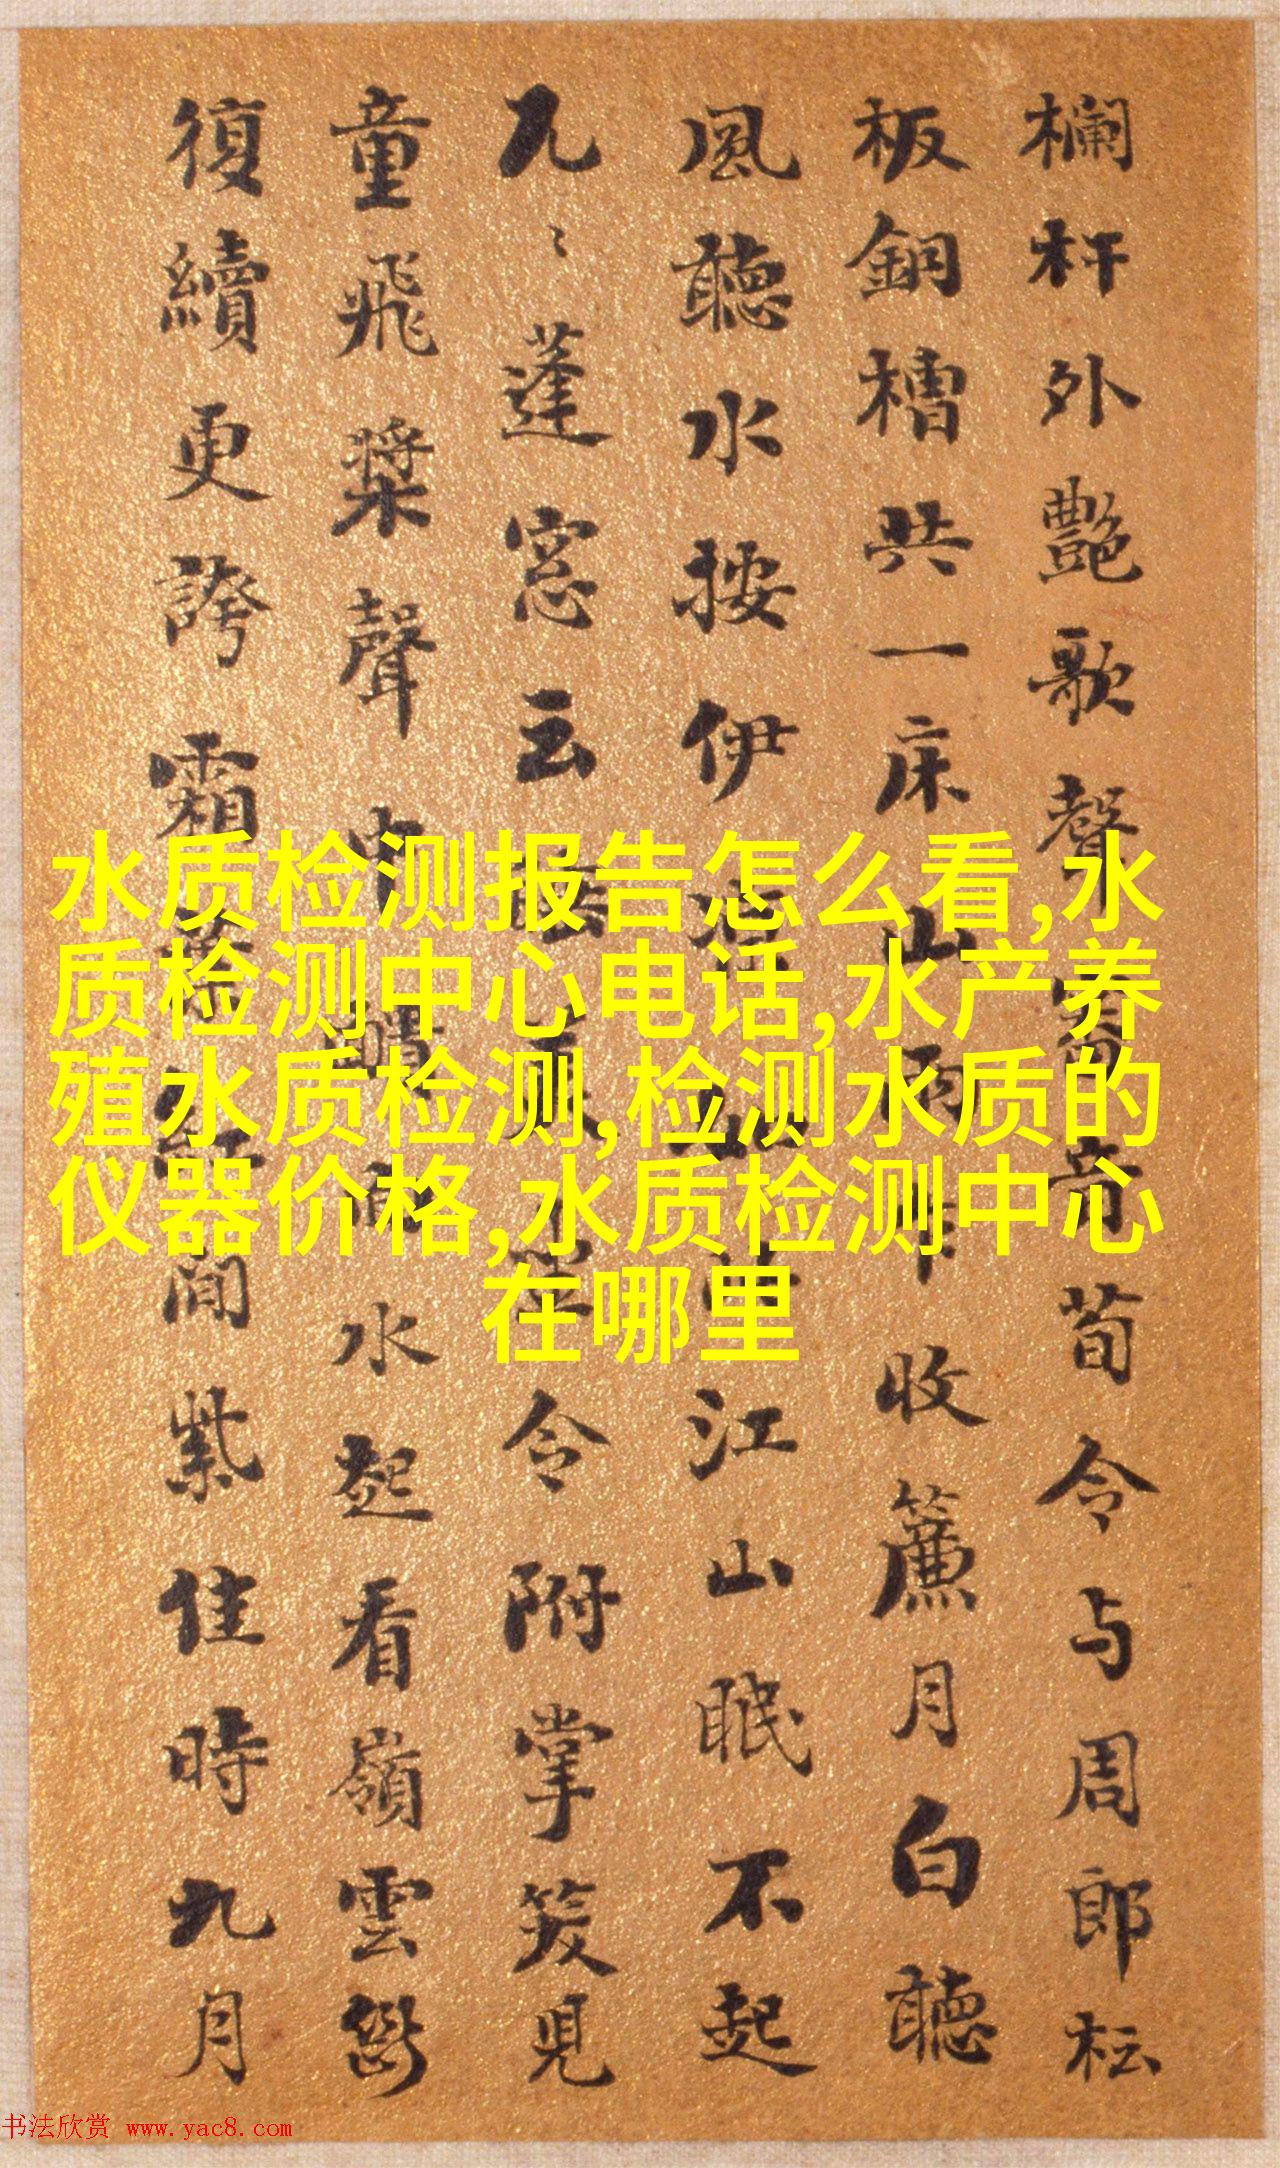 欄杆外艷歌聲審音荀令与周郎
板銅槽共一床山雨乍收簾月白聽
風聽水按伊江山眠不起
兀〻蓬窓云令附掌笑見
童飛槳聲中水起看嶺雲
復續更誇霜間紫佳時九月
水质检测报告怎么看,水
质检测中心电话,水产养
殖水质检测,检测水质的
仪器价格,水质检测中心
在哪里
书法欣赏 www.yac8.com